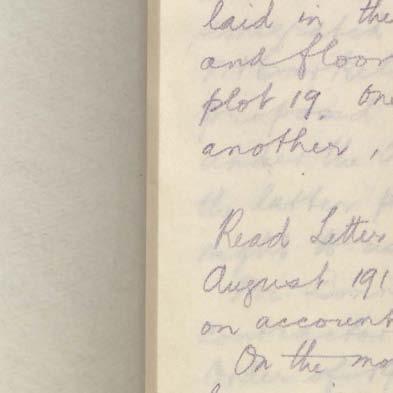 laid in the
and floor
plot 19. One
another,
Read Letter
August 191
on account
On the mo